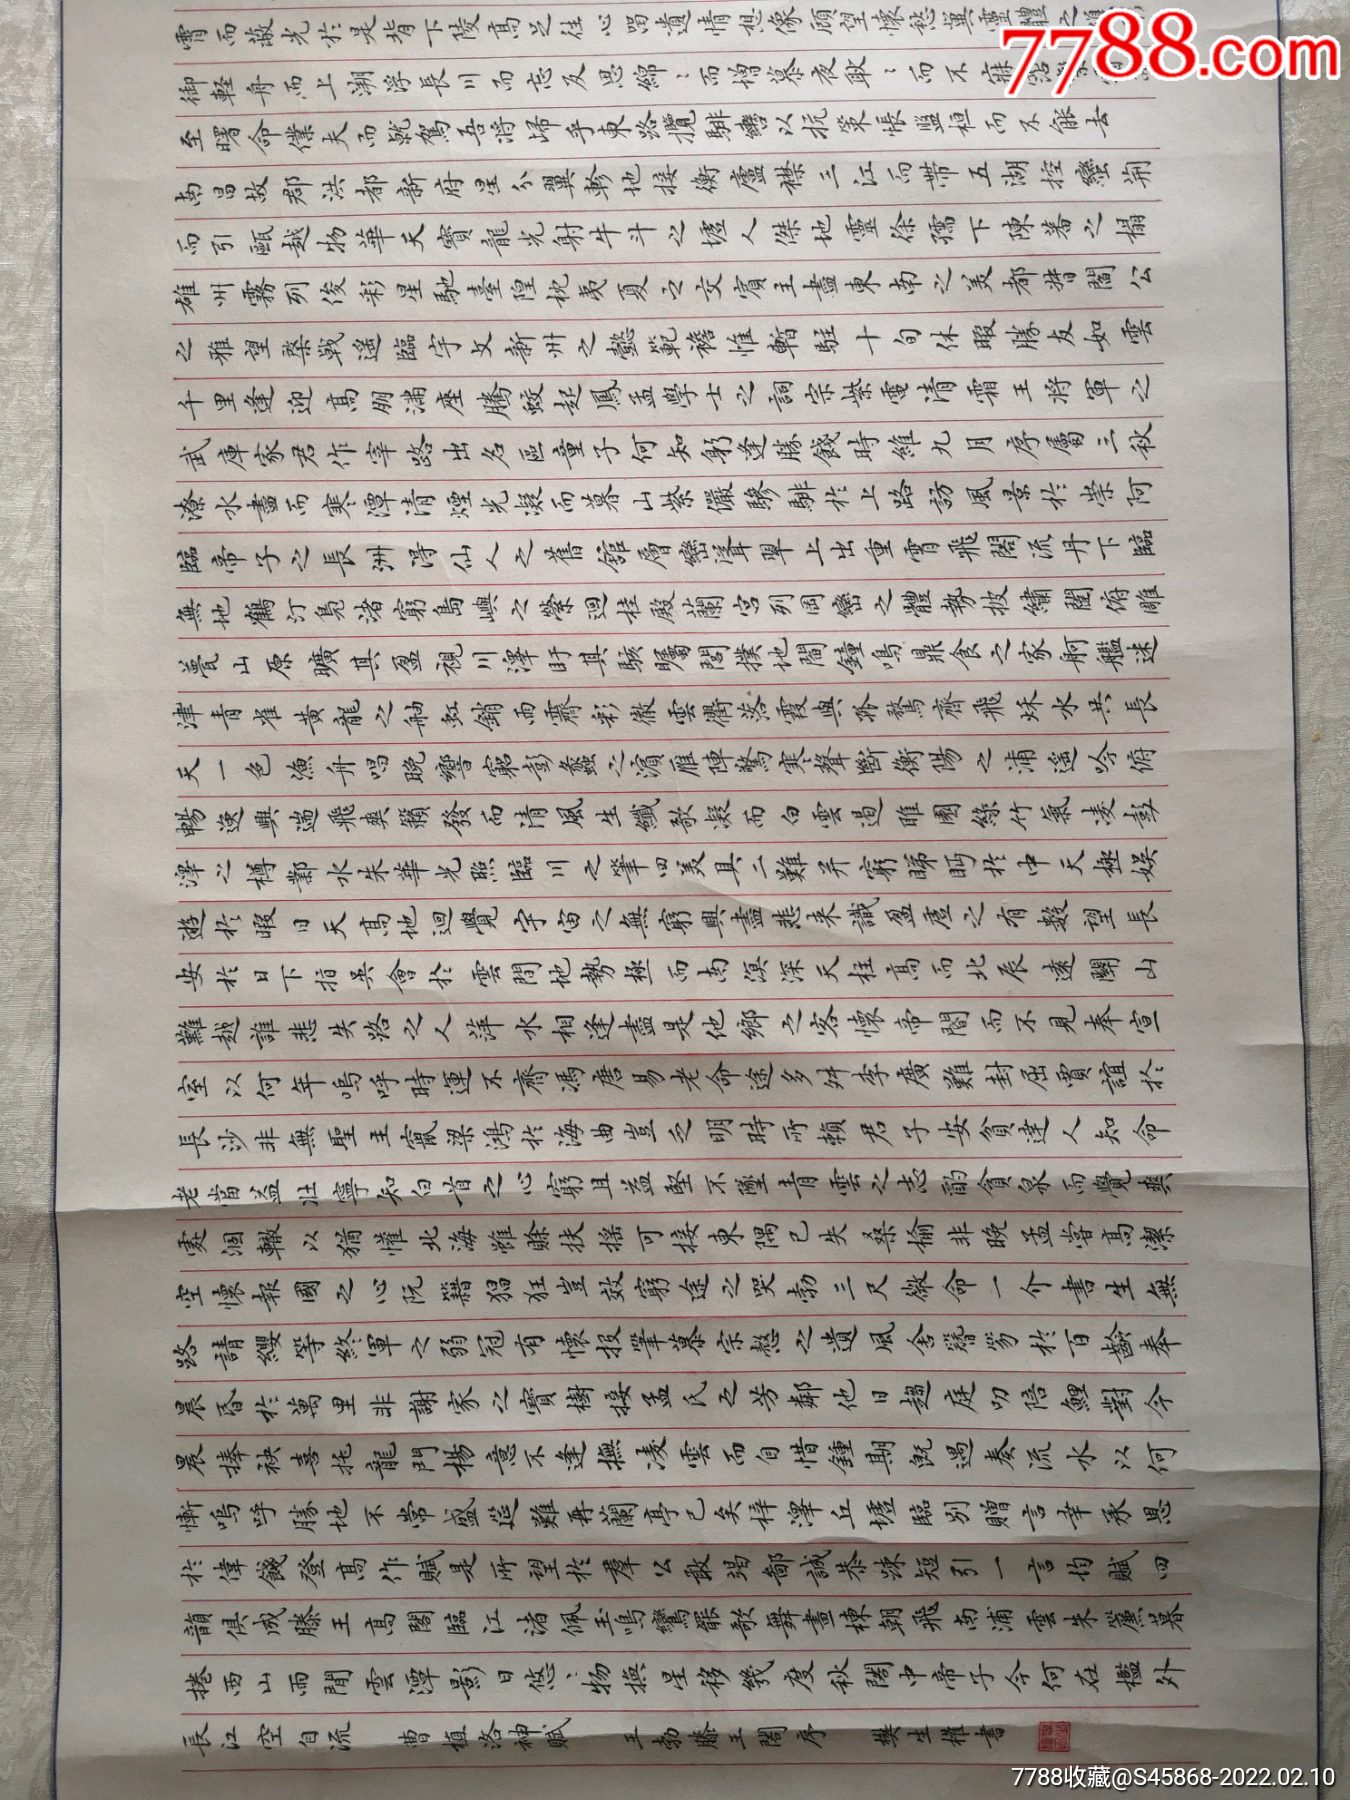 霄而蔽光於是背下陵高足往心留遺情想像顧望懷愁冀靈體之
御輕舟而上溯浮長川而忘反思綿〻而增慕夜耿〻而不寐
至曙命僕夫而就駕吾將歸乎東路攬騑轡以抗策悵盤桓而不能去
南昌故郡洪都新府星分翼軫地接衡廬襟三江而帶五湖控蠻荊
而引甌越物華天寶龍光射牛斗之墟人傑地靈徐孺下陳蕃之榻
雄州霧列俊彩星馳臺隍枕夷夏之交賓主盡東南之美都督閻公
之雅望棨戟遙臨宇文新州之懿範襜惟暫駐十旬休暇勝友如雲
千里逢迎高朋滿座騰蛟起鳳孟學士之詞宗紫電清霜王將軍之
武庫家君作宰路出名區童子何知躬逢勝餞時維九月序屬三秋
潦水盡而寒潭清煙光凝而暮山紫儼驂騑於上路訪風景於崇阿
臨帝子之長洲得仙人之舊館層巒聳翠上出重霄飛閣流丹下臨
無地鶴汀鳧渚窮島嶼之縈迴桂殿蘭宮列岡巒之體勢披繡闥俯雕
甍山原曠其盈視川澤盱其駭矚閭撲地閭鐘鳴鼎食之家舸艦迷
津青雀黃龍之舳虹銷雨霽彩徹雲衢落霞與孤鶩齊飛秋水共長
天一色漁舟唱晚響窮彭蠡之濱雁陣驚寒聲斷衡陽之浦遙吟俯
暢逸興遄飛爽籟發而清風生纖歌凝而白雲遏睢園綠竹氣凌彭
澤之樽鄴水朱華光照臨川之筆四美具二難并窮睇眄於中天極娛
遊於暇日天高地迴覺宇宙之無窮興盡悲來識盈虛之有數望長
安於日下指吳會於雲間地勢極而南溟深天柱高而北辰遠關山
難越誰悲失路之人萍水相逢盡是他鄉之客懷帝閽而不見奉宣
室以何年嗚呼時運不齊馮唐易老命途多舛李廣難封屈賈誼於
長沙非無聖主竄梁鴻於海曲豈乏明時所賴君子安貧達人知命
老當益壯寧知白首之心窮且益堅不墜青雲之志酌貪泉而覺爽
處涸轍以猶懽北海雖賒扶搖可接東隅已失桑榆非晚孟嘗高潔
空懷報國之心阮籍猖狂豈效窮途之哭勃三尺微命一介書生無
路請纓等終軍之弱冠有懷投筆慕宗愨之遺風舍簪笏於百齡奉
晨昏於萬里非謝家之寶樹接孟氏之芳鄰他日趨庭叨陪鯉對今
晨捧袂喜托龍門楊意不逢撫凌雲而自惜鍾期既遇奏流水以何
慚嗚呼勝地不常盛筵難再蘭亭已矣梓澤丘墟臨別贈言幸承恩
於偉餞登高作賦是所望於羣公敢竭鄙誠恭疎短引一言均賦四
韻俱成滕王高閣臨江渚佩玉鳴鸞罷歌舞畫棟朝飛南浦雲朱簾暮
捲西山雨閒雲潭影日悠〻物換星移幾度秋閣中帝子今何在檻外
長江空自流 曹植洛神賦 王勃滕王閣序 樊生權書
7788.com
7788收藏@S45868-2022.02.10